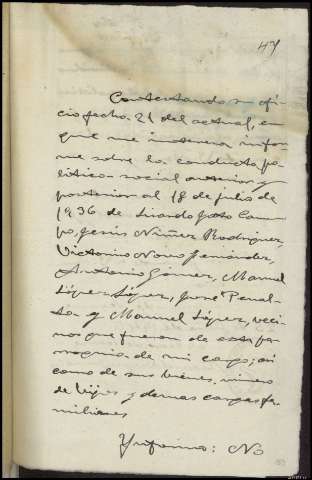 47
Contestando su ofi-
cio fecha 21 del actual, en
qué me interesa infor-
me sobre la conducta po-
litico-social anterior y
posterior al 18 de julio de
1936 de Lisardo Goto Camp-
po, Jesús Núñez Rodriguez,
Victorino Novo Fernández,
Antonio Gómez, Manuel
López López, José Penal-
ta y Manuel López, veci-
nos que fueron de esta pa-
rroquia de mi cargo; así
como de sus bienes, número
de hijos y demas cargas fa-
miliares
Informo: No